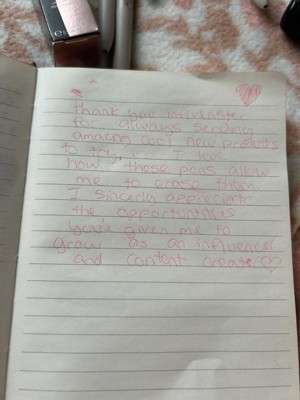 thank you influenster
for always sending
amazing cool new products
to try. I love
how these pens allow
me to erase them.
I sincerly appreciate
the opportunities
you've given me to
grow as an influencer
and content creator